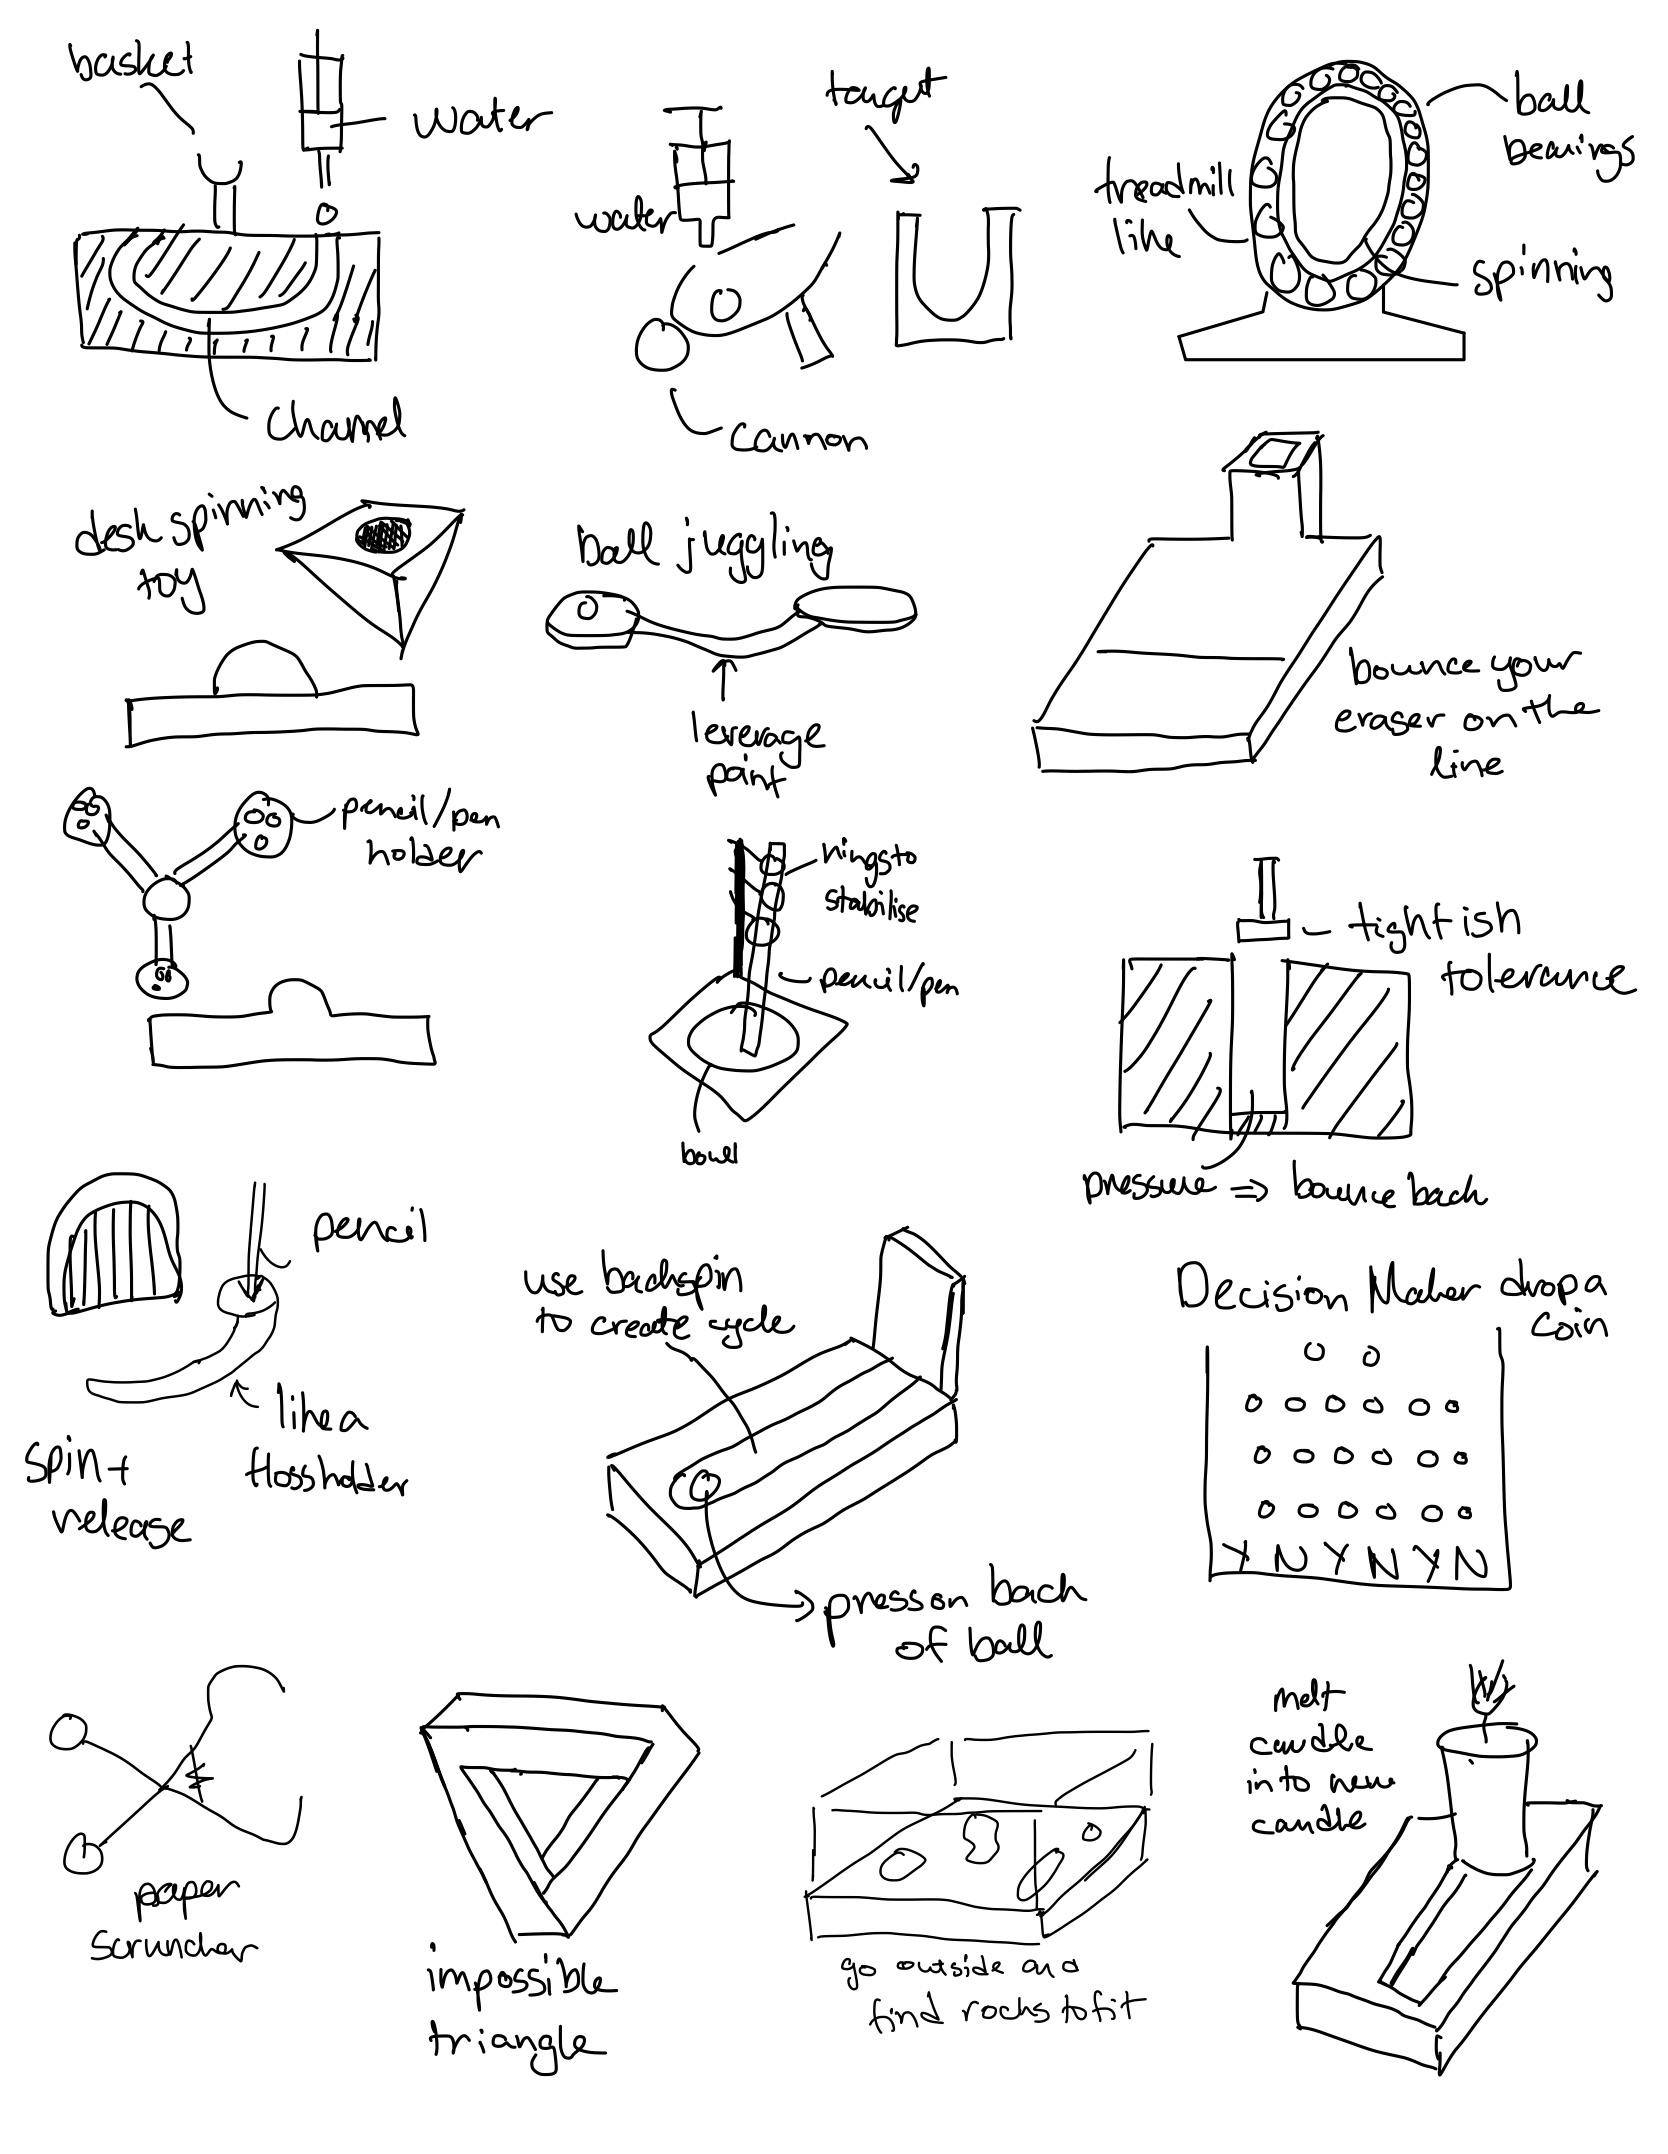 basket
water
water
target
ball
bearings
treadmill
like
spinning
channel
cannon
desk spinning
toy
ball juggling
leverage
point
bounce your
eraser on the
line
pencil/pen
holder
rings to
stabilise
pencil/pen
bowl
tight ish
tolerance
pressure => bounce back
pencil
like a
flossholder
spin +
release
use backspin
to create cycle
press on back
of ball
Decision Maker drop a
coin
Y N Y N Y N
paper
scruncher
impossible
triangle
go outside and
find rocks to fit
melt
candle
into new
candle